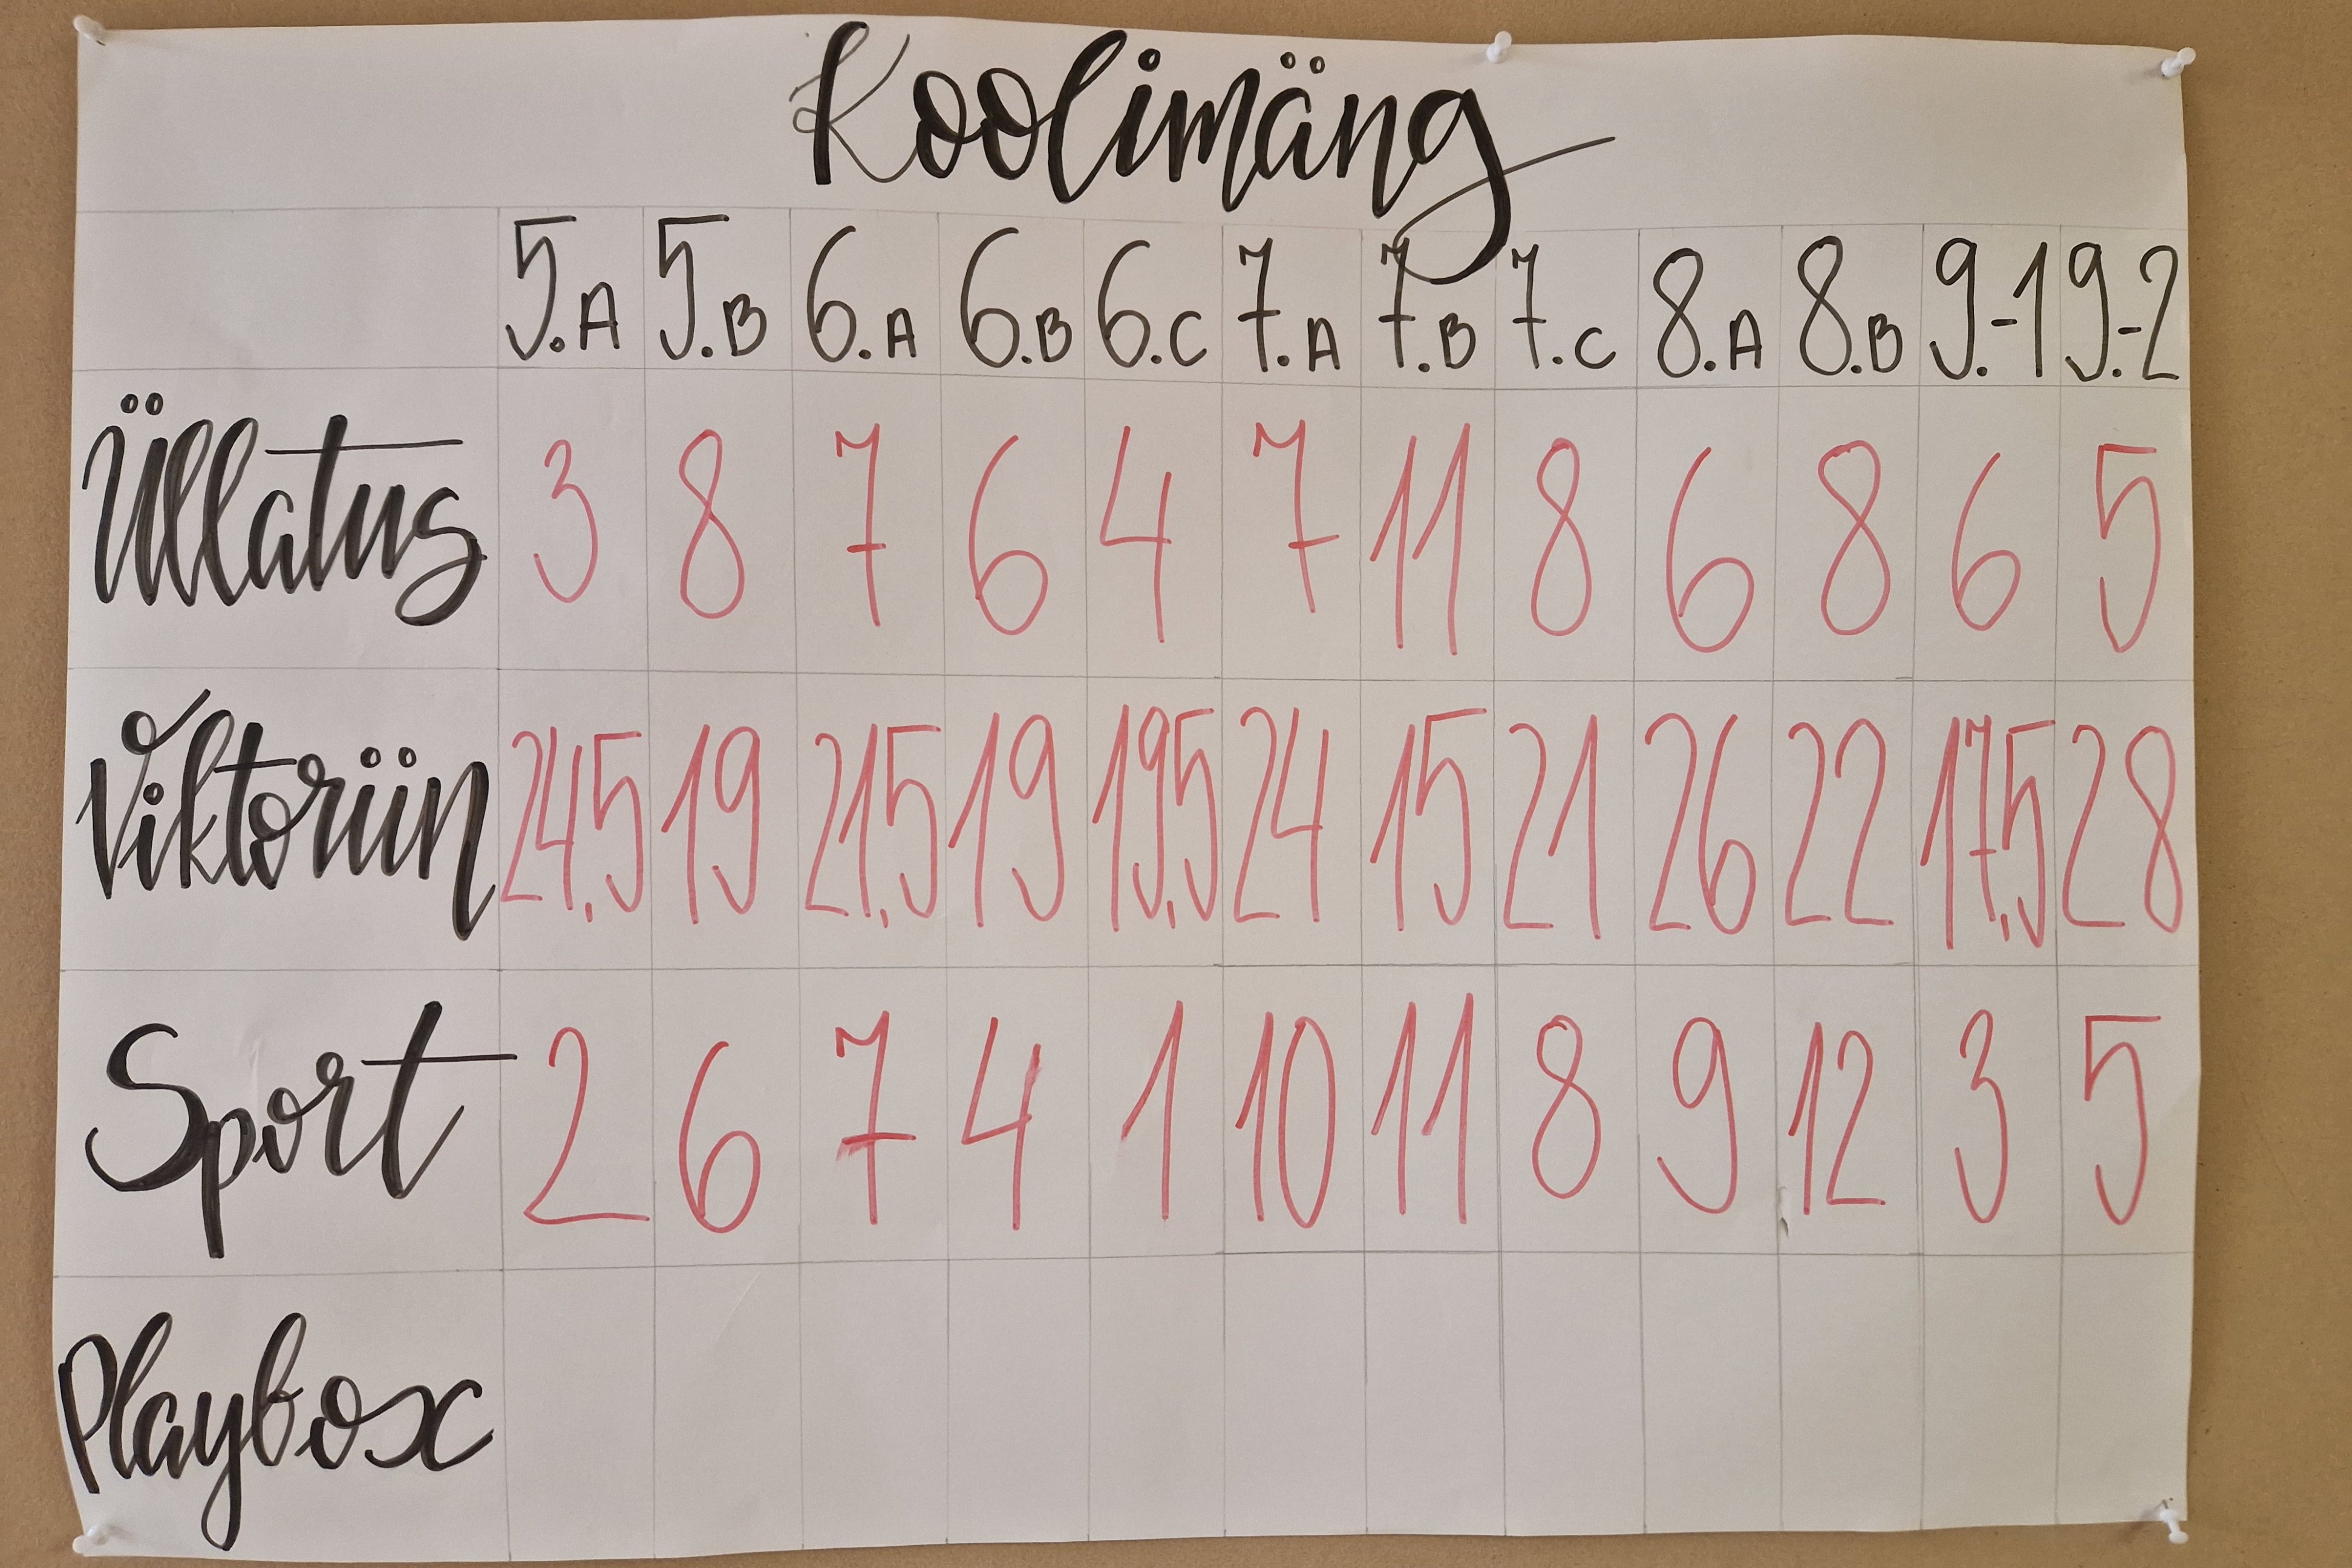 Koolimäng
5.A 5.B 6.A 6.B 6.C 7.A 7.B 7.C 8.A 8.B 9.-1 9.-2
Üllatus 3 8 7 6 4 7 11 8 6 8 6 5
Viktoriin 24,5 19 21,5 19 19,5 24 15 21 26 22 17,5 28
Sport 2 6 7 4 1 10 11 8 9 12 3 5
Playbox